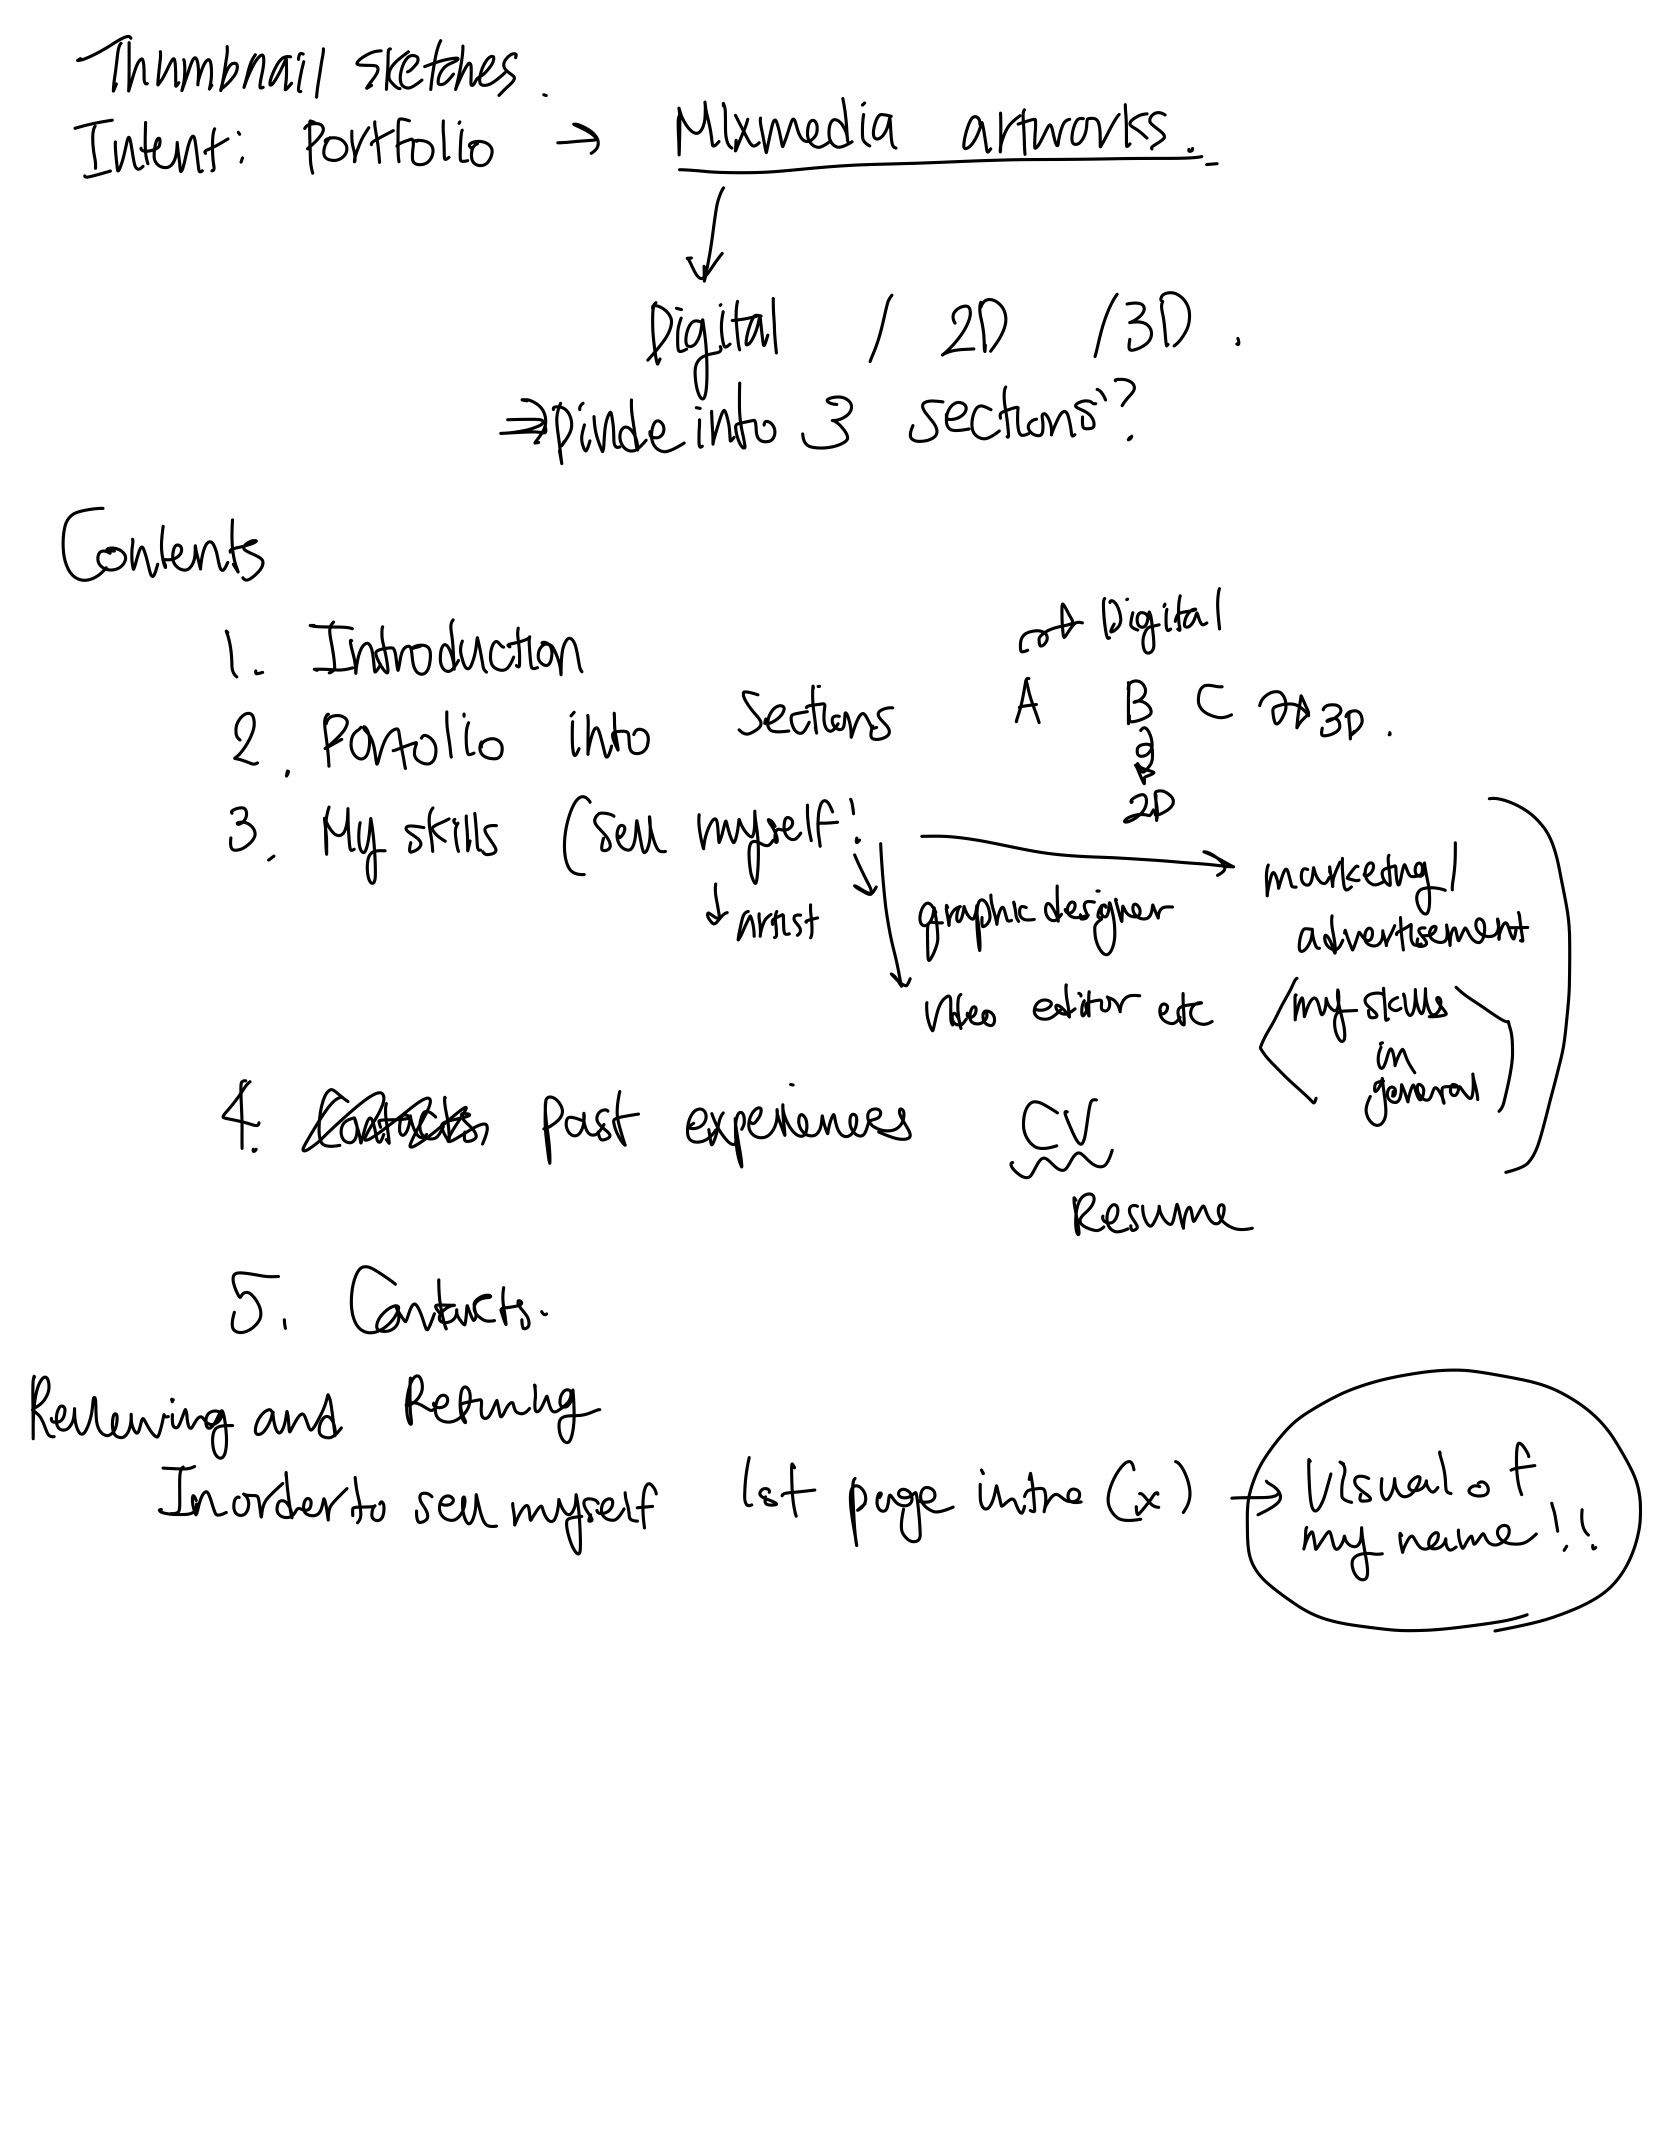 Thumbnail sketches.
Intent: Portfolio → Mixmedia artworks.
Digital / 2D / 3D.
⇒ Divide into 3 sections?
Contents
1. Introduction
→ Digital
2. Portfolio into Sections A B C → 3D.
2D
3. My skills (sell myself!
→ marketing /
advertisement
↓ artist
graphic designer
video editor etc
<my skills
in
general>
)
4. Contacts Past experiences CV
Resume
5. Contacts.
Reviewing and Refining
In order to sell myself 1st page intro (x) → Visual of
my name!!